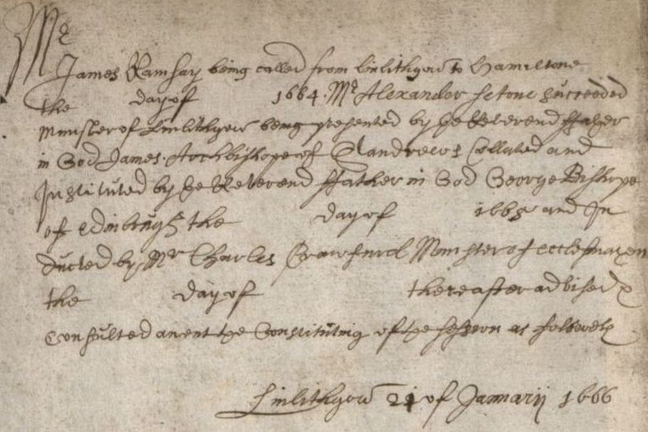 Mr
James Ramsay being called from Linlithgow to Hamiltone
the day of 1664. Mr Alexander Setone succeeded
Minister of Linlithgow being presented by ye Reverend ffather
in God James Archbishope of Standrews Collated and
Instituted by ye Reverend ffather in God George Bishope
of Edinbrugh the day of 1665 and In
ducted by Mr Charles Crawfurd Minister of Ecclesmaxen
the day of thereafter advised &
Consulted anent the Constituting of the session as followeth
Linlithgow 21 of Januarij 1666